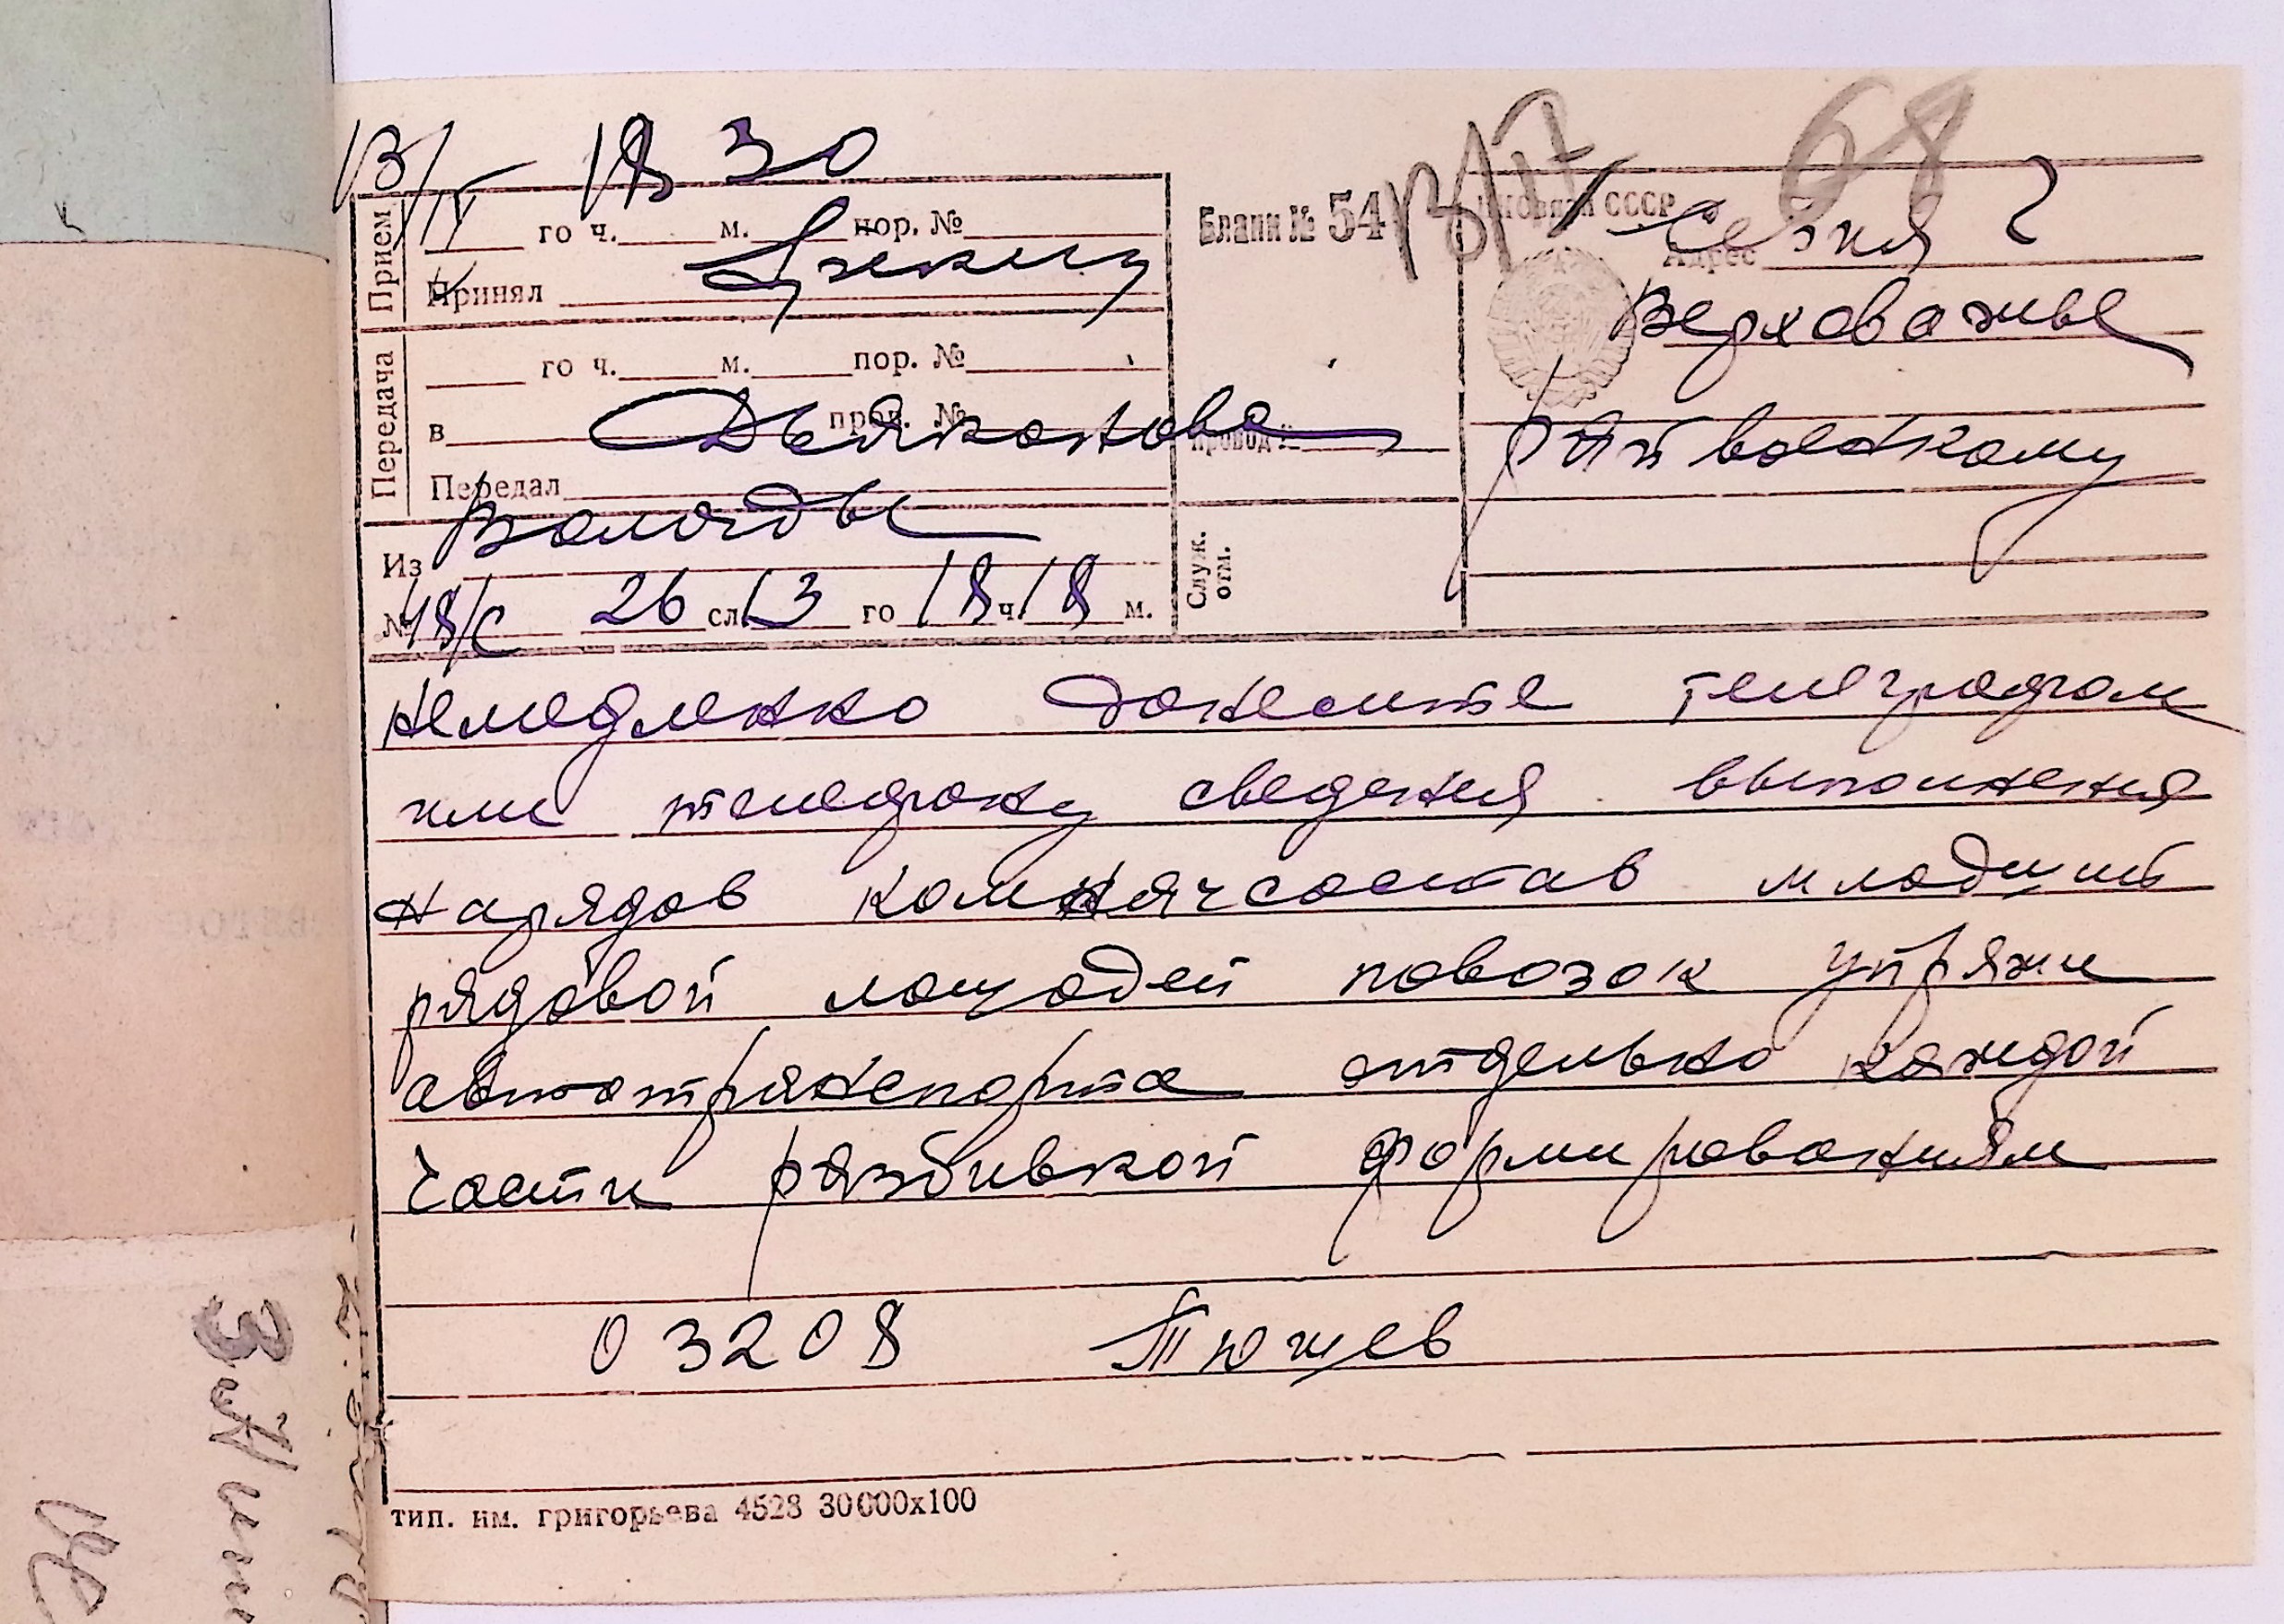 13/IV 18 30
68
Прием
го ч. м. пор. №
Принял
Бланк № 54
13/IV
СССР
Серия Г
Адрес
Верховажье
Передача
го ч. м. пор. №
в пров. №
Дьяконова
Провод №
Райвоенкому
Передал
Из Вологды
Служ. отм.
№ 48/с 26 сл. 13 го 18 ч. 18 м.
Немедленно донесите телеграфом
или телефону сведения выполнения
нарядов комначсостав младший
рядовой лошадей повозок упряжи
автотранспорта отдельно каждой
части разбивкой формированиям
03208 Тюшев
тип. им. григорьева 4528 30000х100